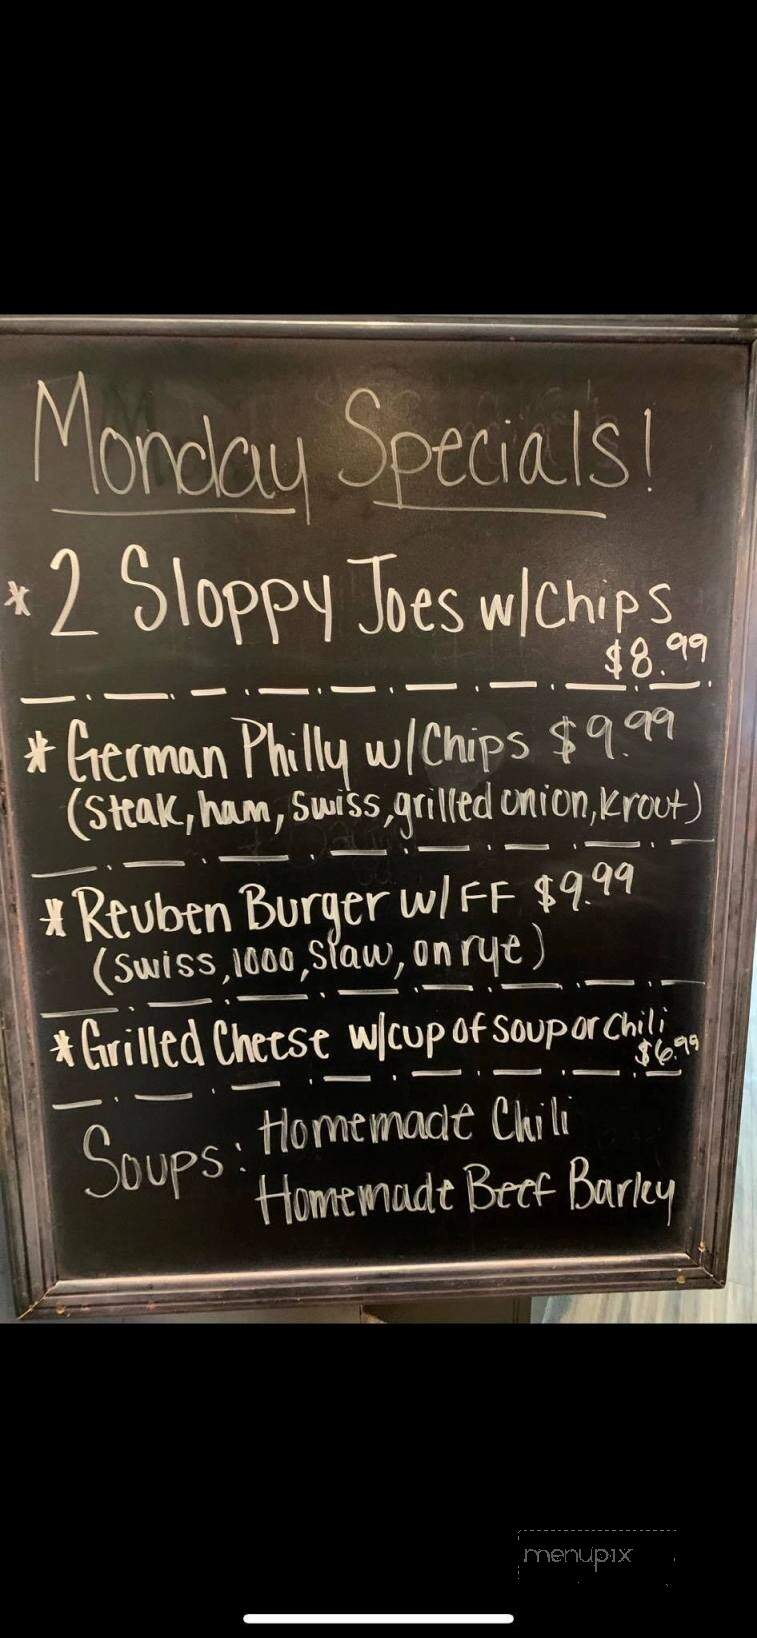 Monday Specials!
* 2 Sloppy Joes w/chips
$8.99
* German Philly w/Chips $9.99
(Steak, ham, Swiss, grilled onion, Krout)
* Reuben Burger w/ FF $9.99
(Swiss, 1000, Slaw, on rye)
* Grilled Cheese w/cup of soup or Chili
$6.99
Soups: Homemade Chili
Homemade Beef Barley
menupix